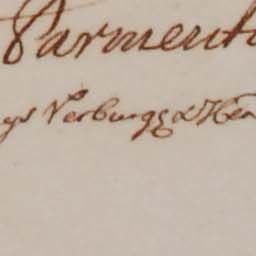 Parmento
gs Verburgg & Hen